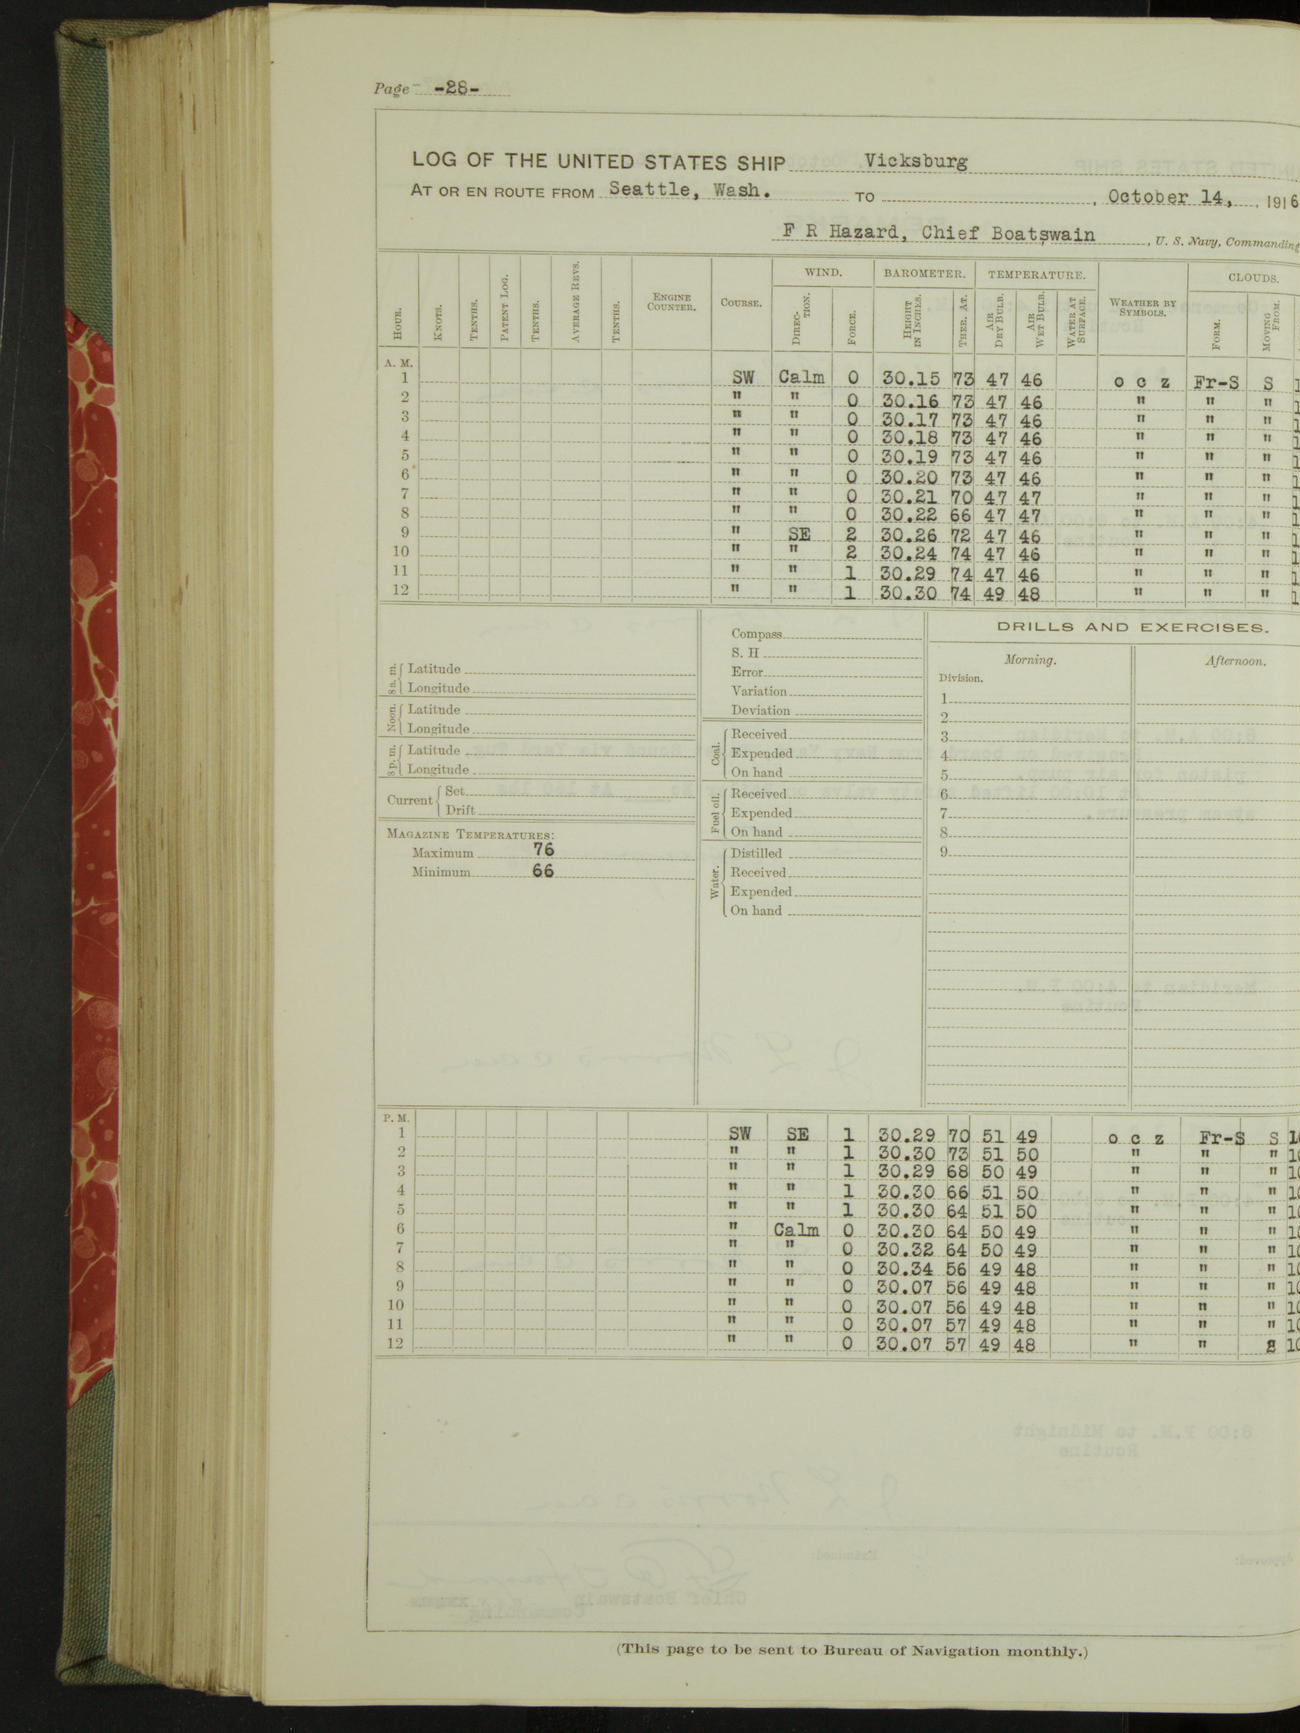 Page -28-
LOG OF THE UNITED STATES SHIP Vicksburg
AT OR EN ROUTE FROM Seattle, Wash. TO , October 14, , 1916
F R Hazard, Chief Boatswain , U. S. Navy, Commanding
WIND. BAROMETER. TEMPERATURE. CLOUDS.
HOUR. KNOTS. TENTHS. PATENT LOG. TENTHS. AVERAGE REVS. TENTHS. ENGINE COUNTER. COURSE. DIRECTION. FORCE. HEIGHT IN INCHES. THER. AT. AIR DRY BULB. AIR WET BULB. WATER AT SURFACE. WEATHER BY SYMBOLS. FORM. MOVING FROM.
A. M.
1 SW Calm 0 30.15 73 47 46 o c z Fr-S S 1
2 " " 0 30.16 73 47 46 " " " 1
3 " " 0 30.17 73 47 46 " " " 1
4 " " 0 30.18 73 47 46 " " " 1
5 " " 0 30.19 73 47 46 " " " 1
6 " " 0 30.20 73 47 46 " " " 1
7 " " 0 30.21 70 47 47 " " " 1
8 " " 0 30.22 66 47 47 " " " 1
9 " SE 2 30.26 72 47 46 " " " 1
10 " " 2 30.24 74 47 46 " " " 1
11 " " 1 30.29 74 47 46 " " " 1
12 " " 1 30.30 74 49 48 " " " 1
8 a. m. Latitude
Longitude
Noon. Latitude
Longitude
8 p. m. Latitude
Longitude
Current Set
Drift
MAGAZINE TEMPERATURES:
Maximum 76
Minimum 66
Compass
S. H
Error
Variation
Deviation
Coal. Received
Expended
On hand
Fuel oil. Received
Expended
On hand
Water. Distilled
Received
Expended
On hand
DRILLS AND EXERCISES.
Morning. Afternoon.
Division.
1
2
3
4
5
6
7
8
9
P. M.
1 SW SE 1 30.29 70 51 49 o c z Fr-S S 10
2 " " 1 30.30 73 51 50 " " " 10
3 " " 1 30.29 68 50 49 " " " 10
4 " " 1 30.30 66 51 50 " " " 10
5 " " 1 30.30 64 51 50 " " " 10
6 " Calm 0 30.30 64 50 49 " " " 10
7 " " 0 30.32 64 50 49 " " " 10
8 " " 0 30.34 56 49 48 " " " 10
9 " " 0 30.07 56 49 48 " " " 10
10 " " 0 30.07 56 49 48 " " " 10
11 " " 0 30.07 57 49 48 " " " 10
12 " " 0 30.07 57 49 48 " " 10
(This page to be sent to Bureau of Navigation monthly.)